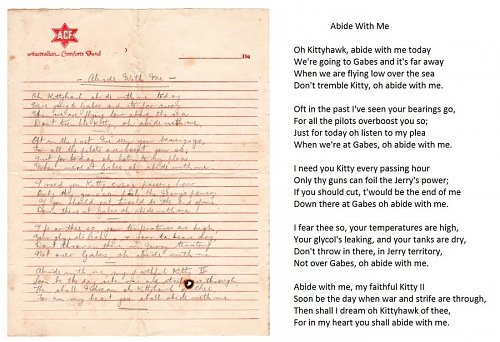 ACF
Australian Comforts Fund
194
— Abide With Me —
Oh Kittyhawk abide with me today
We're going to Gabes and its far away
When we are flying low above the sea
Don't Kitty, oh abide with me.
Oft in the past I've seen your bearings go,
For all the pilots overboost you so
Just for today oh listen to my plea
When we're at Gabes oh abide with me.
I need you Kitty every passing hour
Only thy guns can foil the Jerry's power;
If you should cut twould be the end of me
Down there at Gabes oh abide with me!
I fear thee so your temperatures are high,
Your glycol's leaking, your tanks are dry,
Don't throw in there in Jerry territory
Not over Gabes, oh abide with me
Abide with me, my faithful Kitty II
Soon be the day when war and strife are through
Then shall I dream oh Kittyhawk of thee
For in my heart you shall abide with me
Abide With Me
Oh Kittyhawk, abide with me today
We're going to Gabes and it's far away
When we are flying low over the sea
Don't tremble Kitty, oh abide with me.
Oft in the past I've seen your bearings go,
For all the pilots overboost you so;
Just for today oh listen to my plea
When we're at Gabes, oh abide with me.
I need you Kitty every passing hour
Only thy guns can foil the Jerry's power;
If you should cut, t'would be the end of me
Down there at Gabes oh abide with me.
I fear thee so, your temperatures are high,
Your glycol's leaking, and your tanks are dry,
Don't throw in there, in Jerry territory,
Not over Gabes, oh abide with me.
Abide with me, my faithful Kitty II
Soon be the day when war and strife are through,
Then shall I dream oh Kittyhawk of thee,
For in my heart you shall abide with me.